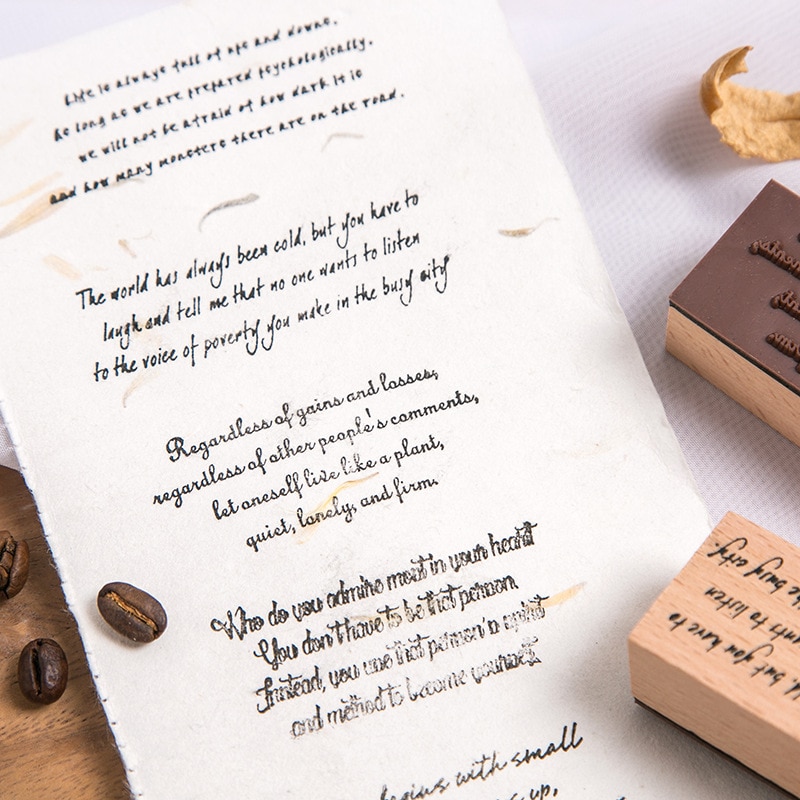 Life is always full of ups and downs.
As long as we are prepared psychologically,
we will not be afraid of how dark it is
and how many monsters there are on the road.
The world has always been cold, but you have to
laugh and tell me that no one wants to listen
to the voice of poverty you make in the busy city
Regardless of gains and losses,
regardless of other people's comments,
let oneself live like a plant,
quiet, lonely, and firm.
Who do you admire most in your heart
You don't have to be that person.
Instead, you use that person's spirit
and method to become yourself.
begins with small
up,
but you have to
nts to listen
busy city.